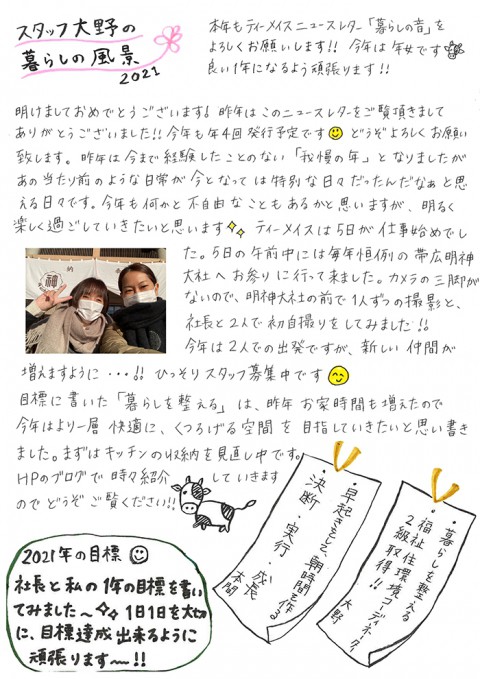 スタッフ大野の
暮らしの風景
2021
本年もティーメイスニュースレター「暮らしの音」を
よろしくお願いします!! 今年は年女です
良い1年になるよう頑張ります!!
明けましておめでとうございます! 昨年はこのニュースレターをご覧頂きまして
ありがとうございました!! 今年も年4回発行予定です どうぞよろしくお願い
致します。昨年は今まで経験したことのない「我慢の年」となりましたが
あの当たり前のような日常が今となっては特別な日々だったんだなぁと思
える日々です。今年も何かと不自由なこともあるかと思いますが、明るく
楽しく過ごしていきたいと思います ティーメイスは5日が仕事始めでし
た。5日の午前中には毎年恒例の帯広明神
大社へお参りに行って来ました。カメラの三脚が
ないので、明神大社の前で1人ずつの撮影と、
社長と2人で初自撮りをしてみました!!
今年は2人での出発ですが、新しい仲間が
増えますように・・・!! ひっそりスタッフ募集中です
目標に書いた「暮らしを整える」は、昨年お家時間も増えたので
今年はより一層快適に、くつろげる空間を目指していきたいと思い書き
ました。まずはキッチンの収納を見直し中です。
HPのブログで時々紹介していきます
のでどうぞご覧ください!!
神
2021年の目標
社長と私の1年の目標を書い
てみました〜 1日1日を大切
に、目標達成出来るように
頑張ります〜!!
・早起きをして、朝時間を作る
・決断・実行・成長
本間
・暮らしを整える
・福祉住環境コーディネーター
2級取得!!
大野